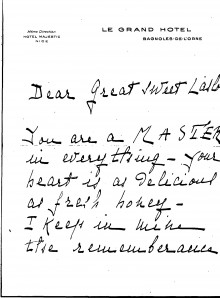 Même Direction
HOTEL MAJESTIC
NICE
LE GRAND HOTEL
BAGNOLES-DE-L'ORNE
Dear Great Sweet
You are a MASTER
in everything - Your
heart is as delicious
as fresh honey -
I Keep in mine
the rememberance